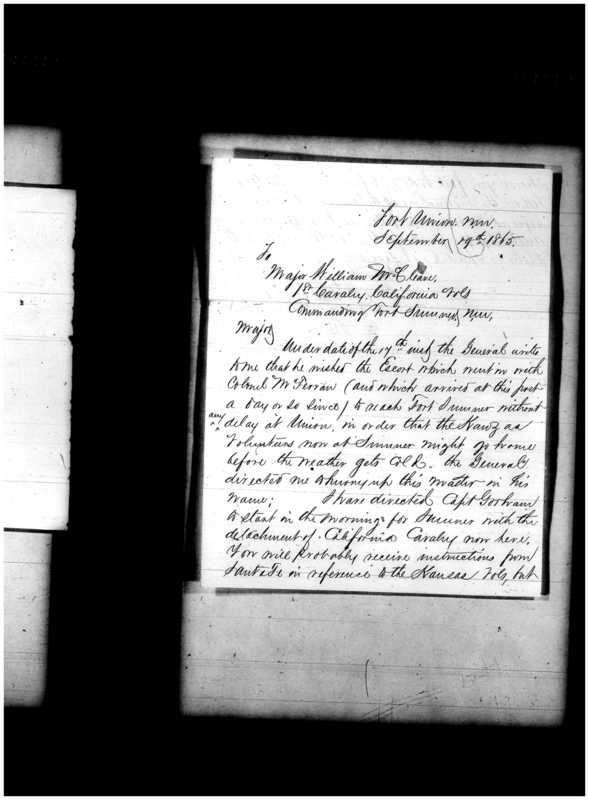 Fort Union. N.M.
September 19th 1865.
To,
Major William McCleave,
1st Cavalry, California Vols
Commanding Fort Sumner, N.M,
Major
Under date of the 17th inst the General writes
to me that he wished the Escort which went in with
Colonel McFerran (and which arrived at this post
a day or so since) to reach Fort Sumner without
any
delay at Union, in order that the Kanzas
Volunteers now at Sumner might go home
before the weather gets cold. the General
directed me to hurry up this matter in his
name; I have directed Capt Gorham
to start in the morning for Sumner with the
detachment of California Cavalry now here.
You will probably receive instructions from
Santa Fe in reference to the Kansas Vols, but